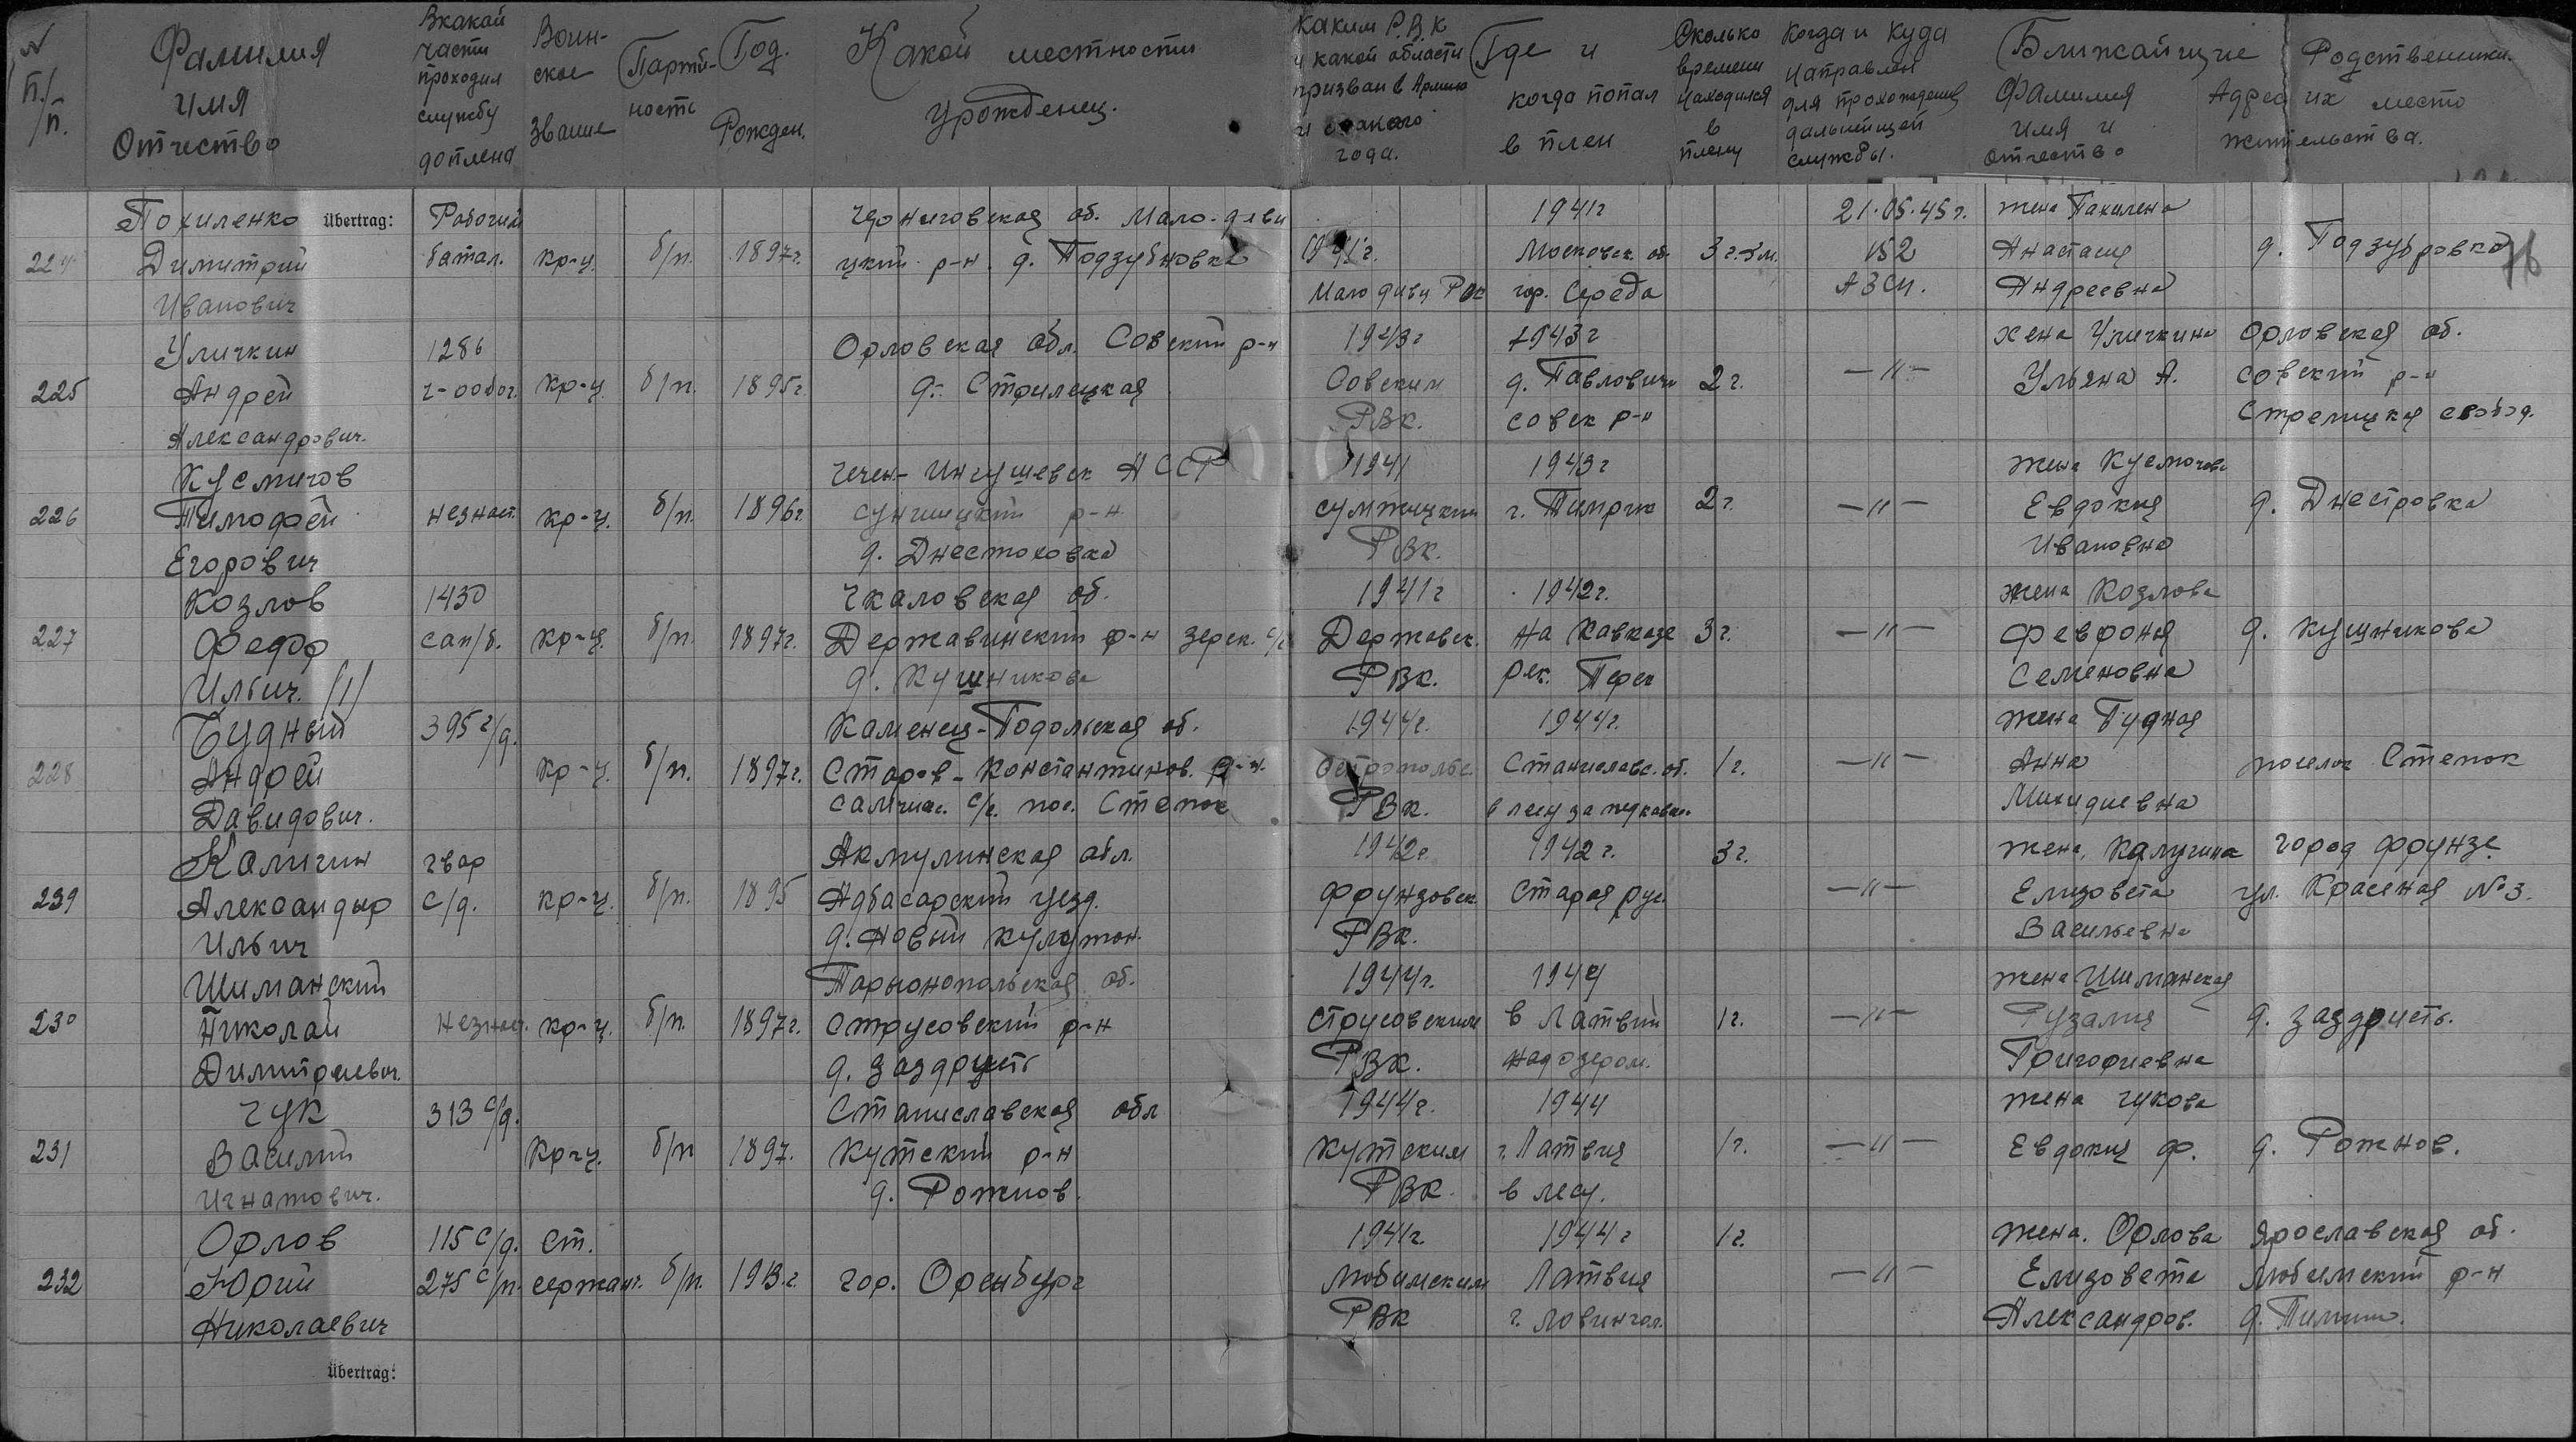 N п./п.
Фамилия Имя Отчество
В какай части проходил службу до плена
Воин-ское звание
Партий-ность
Год. Рожден.
Какой местности урожденец.
Каким Р.В.К и какой области призван в Армию и какого года.
Где и когда попал в плен
Сколько времени находился в плену
Когда и куда направлен для прохождения дальнейшей службы.
Ближайщие Родственники.
Фамилия имя и отчество
Адрес их место жительства.
Похиленко übertrag: Рабочий Черниговская об. Мало-деви 1941г 21.05.45г. жена Пахилена
224 Димитрий батал. кр-ц. б/п. 1897г. цкий р-н. д. Подзубновка 1941г. Московск. об. 3г.5м. 152 Анастасия д. Подзубровка 76
Иванович Мало деви Рвк гор. Середа АЗСП. Андреевна
Уличкин 1286 Орловская обл. Совский р-н 1943г 1943г жена Уличкина Орловская об.
225 Андрей кр-ц. б/п. 1895г. д. Стрилецкая Совским д. Павлович 2г. —〃— Ульяна А. совский р-н
Александрович. РВК. совск р-н Стрелицкая свобод.
Кусмичов Чечен-Ингушевск АССР 1941 1943г жена Кусмочова
226 Тимофей незнает. кр-ц. б/п. 1896г. р-н г. Тимрюк 2г. —〃— Евдокия д. Днестровка
Егорович д. Днестоховка РВК. Ивановна
Козлов 1430 Чкаловская об. 1941г 1942г. жена Козлова
227 Федор сап/б. кр-ц. б/п. 1897г. Державинский р-н зерск. с/с Державск. на Кавказе 3г. —〃— Феврония д. Кушникова
Ильич. (1) д. Кушникова РВК. рек. Терек Семеновна
Будный 395 с/д. Каменец-Подольская об. 1944г. 1944г. жена Будная
228 Андрей кр-ц. б/п. 1897г. Старов-Константинов. р-н. Остропольс Станиславс. об. 1г. —〃— Анна поселок Степок
Давидович. с/с. пос. Степок РВК. в лесу за Михидиевна
Калигин гвар Акмулинская абл. 1942г 1942г. 3г. жена, Калугина город Фрунзе
239 Александыр с/д. кр-ц. б/п. 1895 Адбасарский уезд. Фрунзовск. Старая рус. —〃— Елизовета ул. Красеная №3.
Ильич д. Новый РВК. Васильевна
Шиманский Тарыонопольская об. 1944г. 1944 жена Шиманская
230 Николай незнает. кр-ц. б/п. 1897г. Струсовский р-н струсовским в Латвии 1г. —〃— Рузалия д. Заздрусть.
Димитриевич. д. Заздрусть РВК. над озером. Григориевна
Чук 313 с/д. Станиславская обл 1944г. 1944 жена Чукова
231 Василий кр-ц. б/п 1897. Кутский р-н Кутским г. Латвия 1г. —〃— Евдокия Ф. д. Рожнов.
Игнатович. д. Рожнов. РВК. в лесу.
Орлов 115 с/д. ст. 1941г. 1944г 1г. жена. Орлова Ярославская об.
232 Юрий 275 с/п. сержант. б/п. 1913.г гор. Оренбург Любимским Латвия —〃— Елизовета Любимский р-н
Николаевич РВК Александров.
übertrag: